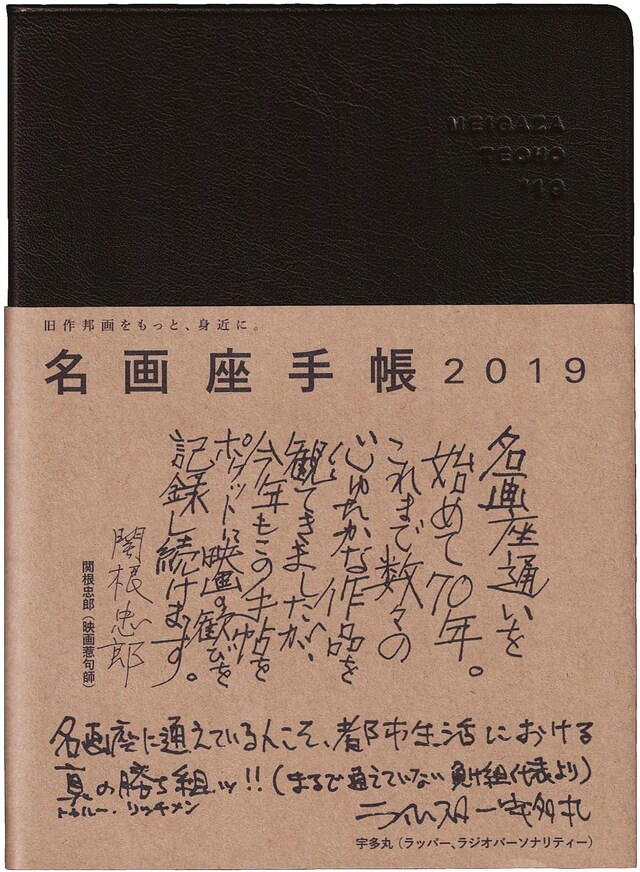 MEIGAZA
TECHO
'19
旧作邦画をもっと、身近に。
名画座手帳2019
名画座通いを
始めて70年。
これまで数々の
心ゆたかな作品を
観てきましたが、
今年もこの手帖を
ポケットに映画の歓びを
記録し続けます。
関根忠郎
関根忠郎(映画惹句師)
名画座に通えている人こそ、都市生活における
真の勝ち組ッ!!(まるで通えていない負け組代表より)
トゥルー・リッチメン
ライムスター宇多丸
宇多丸(ラッパー、ラジオパーソナリティー)